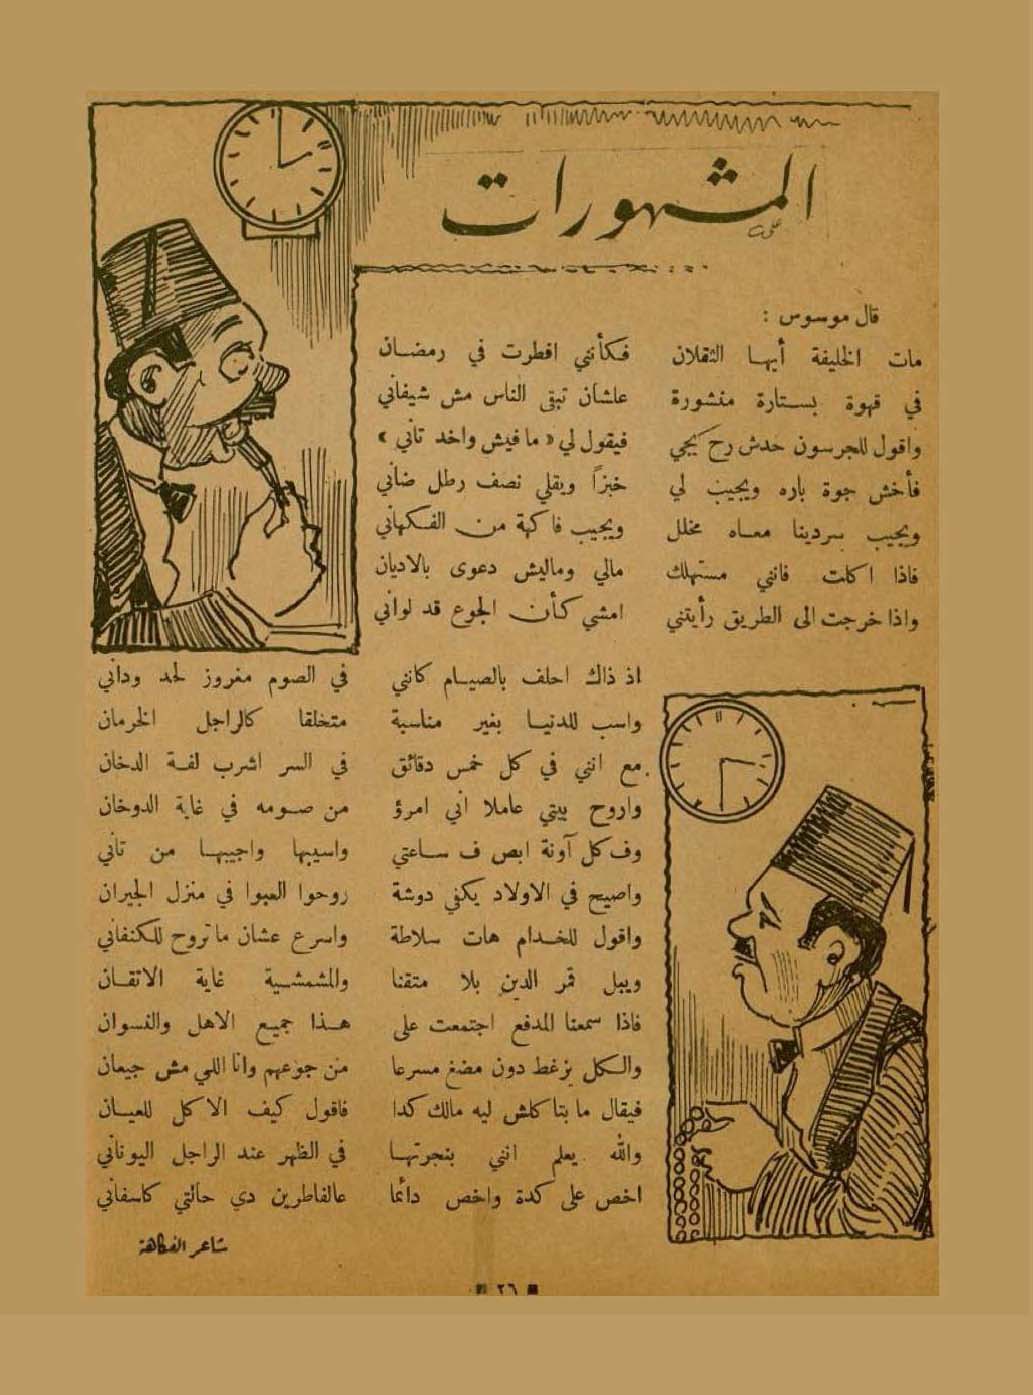 المشهورات
قال موسوس :
مات الخليفة أيها الثقلان فكأنني افطرت في رمضان
في قهوة بستارة منشورة علشان تبقى الناس مش شيفاني
واقول للجرسون حدش رح يجي فيقول لي « ما فيش واحد تاني »
فأخش جوة باره ويجيب لي خبزاً ويقلي نصف رطل ضاني
ويجيب سردينا معاه مخلل ويجيب فاكهة من الفكهاني
فاذا اكلت فانني مستهلك مالي وماليش دعوى بالاديان
واذا خرجت الى الطريق رأيتني امشي كأن الجوع قد لواني
اذ ذاك احلف بالصيام كانني في الصوم مغروز لحد وداني
واسب للدنيا بغير مناسبة متخلقا كالراجل الخرمان
مع انني في كل خمس دقائق في السر اشرب لفة الدخان
واروح بيتي عاملا اني امرؤ من صومه في غاية الدوخان
وف كل آونة ابص ف ساعتي واسيبها واجيبها من تاني
واصيح في الاولاد يكفي دوشة روحوا العبوا في منزل الجيران
واقول للخدام هات سلاطة واسرع عشان ما تروح للكنفاني
ويبل قمر الدين بلا متقنا والمشمشية غاية الاتقان
فاذا سمعنا المدفع اجتمعت على هذا جميع الاهل والنسوان
والكل يزغط دون مضغ مسرعا من جوعهم وانا اللي مش جيعان
فيقال ما بتاكلش ليه مالك كدا فاقول كيف الاكل للعيان
والله يعلم انني بنجرتها في الظهر عند الراجل اليوناني
اخص على كدة واخص دائما عالفاطرين دي حالتي كاسفاني
شاعر الفكاهة
٢٦